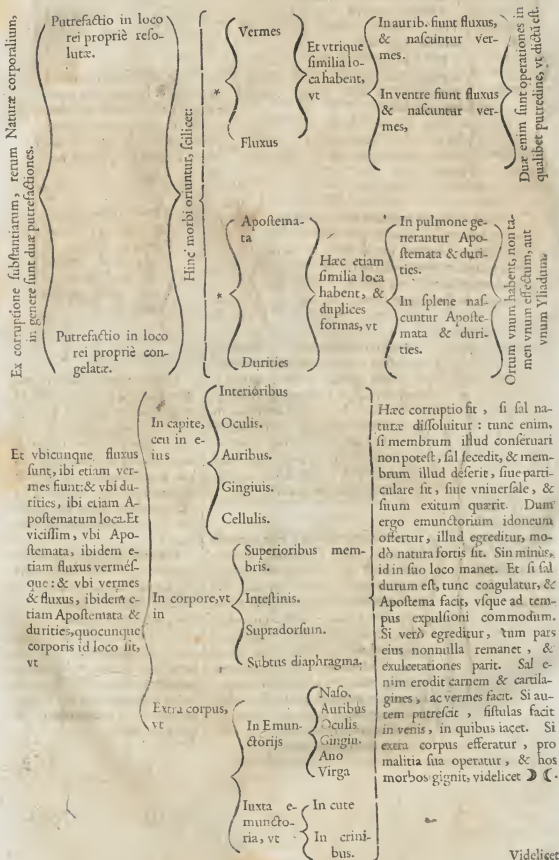 Ex corruptione ſubſtantiarum, rerum Naturæ corporalium,
in genere ſunt duæ putrefactiones.
Putrefactio in loco
rei propriè reſo-
lutæ.
Putrefactio in loco
rei propriè con-
gelatæ.
Hinc morbi oriuntur, ſcilicet:
*
Vermes
Fluxus
Et vtrique
ſimilia lo-
ca habent,
vt
In aurib. fiunt fluxus,
& naſcuntur ver-
mes.
In ventre fiunt fluxus
& naſcuntur ver-
mes,
Duæ enim ſunt operationes in
qualibet putredine, vt dicti eſt.
*
Apoſtema-
ta
Durities
Hæc etiam
ſimilia loca
habent, &
duplices
formas, vt
In pulmone ge-
nerantur Apo-
ſtemata & duri-
ties.
In ſplene naſ-
cuntur Apoſte-
mata & duri-
ties.
Ortum vnum habent, non ta-
men vnum effectum, aut
vnum Yliadum.
Et vbicunque fluxus
ſunt, ibi etiam ver-
mes fiunt: & vbi du-
rities, ibi etiam A-
poſtematum loca. Et
viciſſim, vbi Apo-
ſtemata, ibidem e-
tiam fluxus verméſ-
que: & vbi vermes
& fluxus, ibidem e-
tiam Apoſtemata &
durities, quocunque
corporis id loco ſit,
vt
In capite,
ceu in e-
ius
Interioribus
Oculis.
Auribus.
Gingiuis.
Cellulis.
In corpore, vt
in
Superioribus mem-
bris.
Inteſtinis.
Supradorſum.
Subtus diaphragma.
Extra corpus,
vt
In Emun-
ctorijs
Naſo.
Auribus
Oculis
Gingin.
Ano
Virga
Iuxta e-
muncto-
ria, vt
In cute
In crini-
bus.
Hæc corruptio fit, ſi ſal na-
turæ diſſoluitur: tunc enim,
ſi membrum illud conſeruari
non poteſt, ſal ſecedit, & mem-
brum illud deſerit, ſiue parti-
culare ſit, ſiue vniuerſale, &
ſuum exitum quærit. Dum
ergo emunctorium idoneum
offertur, illud egreditur, mo-
dò natura fortis ſit. Sin minùs,
id in ſuo loco manet. Et ſi ſal
durum eſt, tunc coagulatur, &
Apoſtema facit, vſque ad tem-
pus expulſioni commodum.
Si verò egreditur, tum pars
eius nonnulla remanet, &
exulcetationes parit. Sal e-
nim erodit carnem & cartila-
gines, ac vermes facit. Si au-
tem putreſcit, fiſtulas facit
in venis, in quibus iacet. Si
extra corpus efferatur, pro
malitia ſua operatur, & hos
morbos gignit, videlicet ☽ ☾.
Videlicet